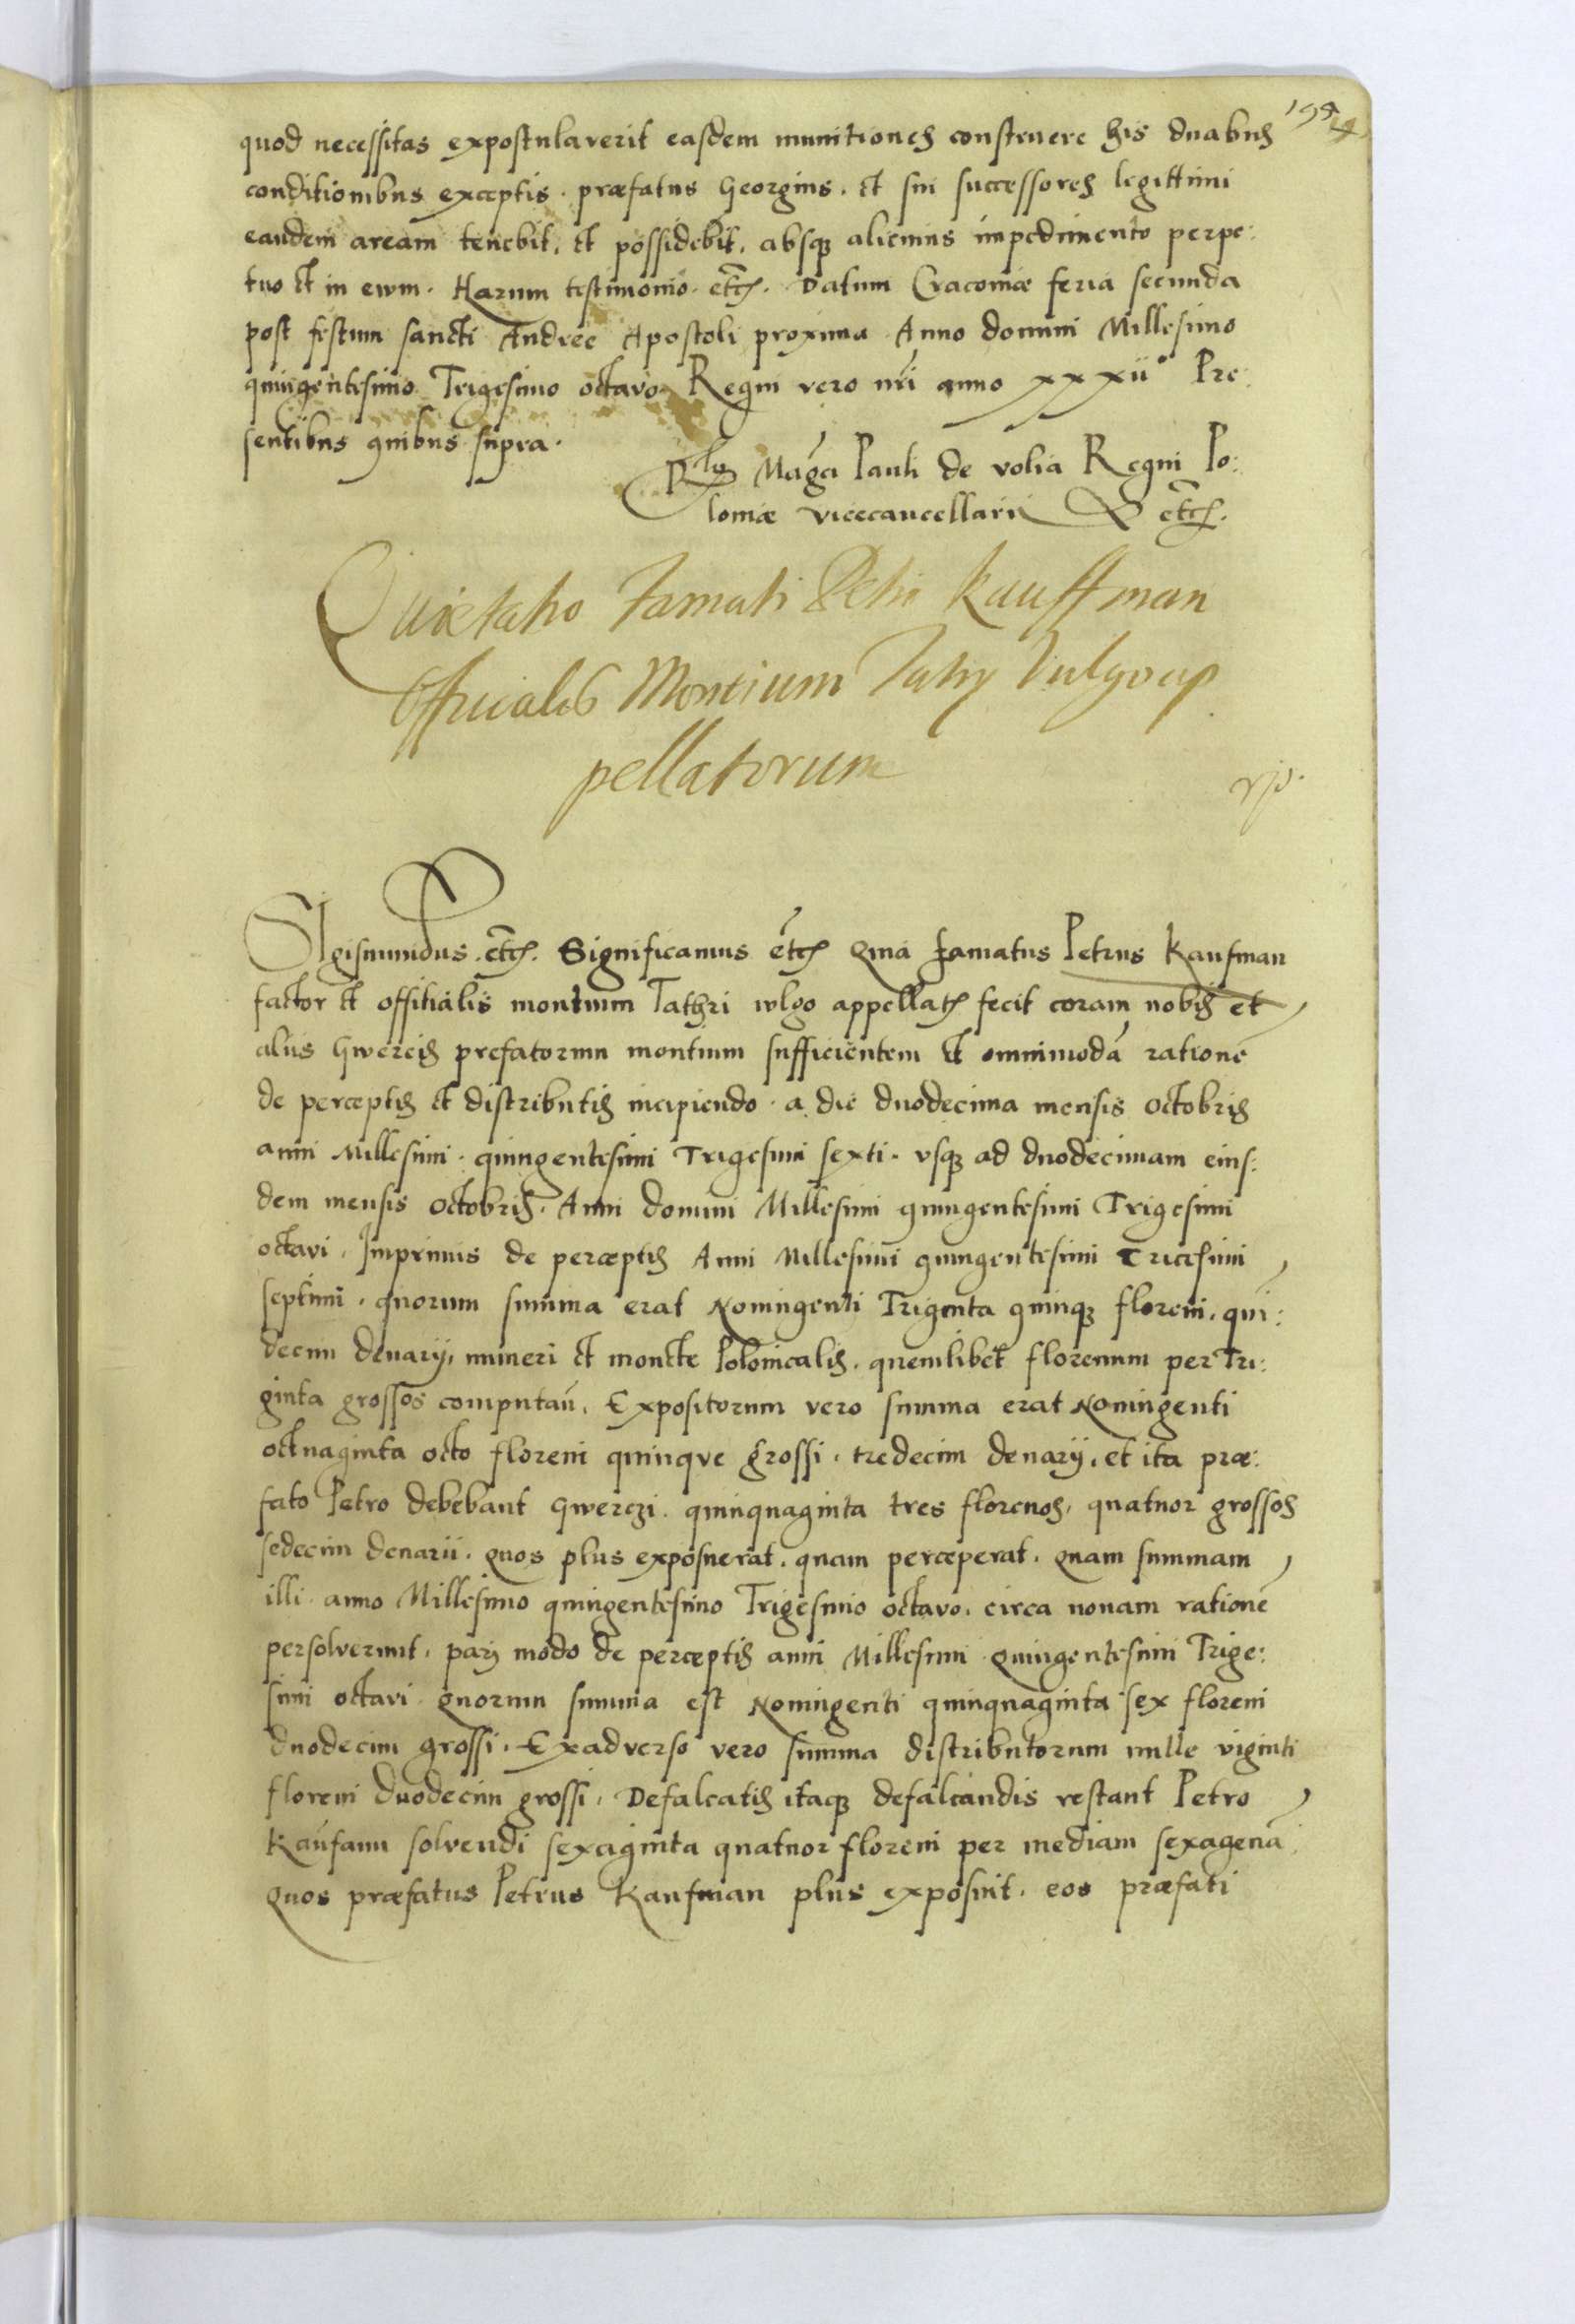 quod necessitas expostulaverit easdem munitiones construere his duabus
conditionibus exceptis. præfatus Georgius. et sui successores legittimi
eandem aream tenebit, et possidebit, absque alicuius impedimento perpe:
tuo et in ewm. Harum testimonio. etc. Datum Cracoviæ feria secunda
post festum sancti Andree Apostoli proxima Anno domini Millesimo
quingentesimo Trigesimo octavo Regni vero nri anno xxxii° Pre:
sentibus quibus supra.
Maga Pauli de volia Regni Po:
loniæ vicecancellarii etc.
Quietatio Famati Petri Kauffman
Officialis Montium Tatry Vulgo ap
pellatorum
Sigismundus. etc. Significamus etc Qmã famatus Petrus Kaufman
factor et offitialis montium Tathri wlgo appellat fecit coram nobis et
aliis Gwercis prefatorum montium sufficientem et omnimodã rationẽ
de perceptis et distributis incipiendo. a die duodecima mensis Octobris
anni Millesimi. quingentesimi Trigesimi sexti. usque ad duodecimam eius:
dem mensis Octobris. Anni domini Millesimi quingentesimi Trigesimi
octavi. Imprimis de perceptis Anni Millesimi quingentesimi Tricesimi
septimi. quorum summa erat Noningenti Triginta quinque floreni, quĩ:
decim denarij, numeri et monete Polonicalis. quemlibet florenum per Tri:
ginta grossos computañ. Expositorum vero summa erat Noningenti
octuaginta octo floreni quinque grossi. tredecim denarij. et ita præ:
fato Petro debebant Gwerczi. quinquaginta tres florenos, quatuor grossos
sedecim denarii. quos plus exposuerat. quam perceperat. Quam summam
illi anno Millesimo quingentesimo Trigesimo octavo. circa nonam rationẽ
persolverunt, parj modo de perceptis anni Millesimi Quingentesimi Trige:
simi octavi. quorum summa est Noningenti quinquaginta sex floreni
duodecim grossi. Exadverso vero summa distributorum mille viginti
floreni duodecim grossi. Defalcatis itaque defalcandis restant Petro
Kaufann solvendi sexaginta quatuor floreni per mediam sexagenã.
Quos præfatus Petrus Kaufman plus exposuit. eos præfati